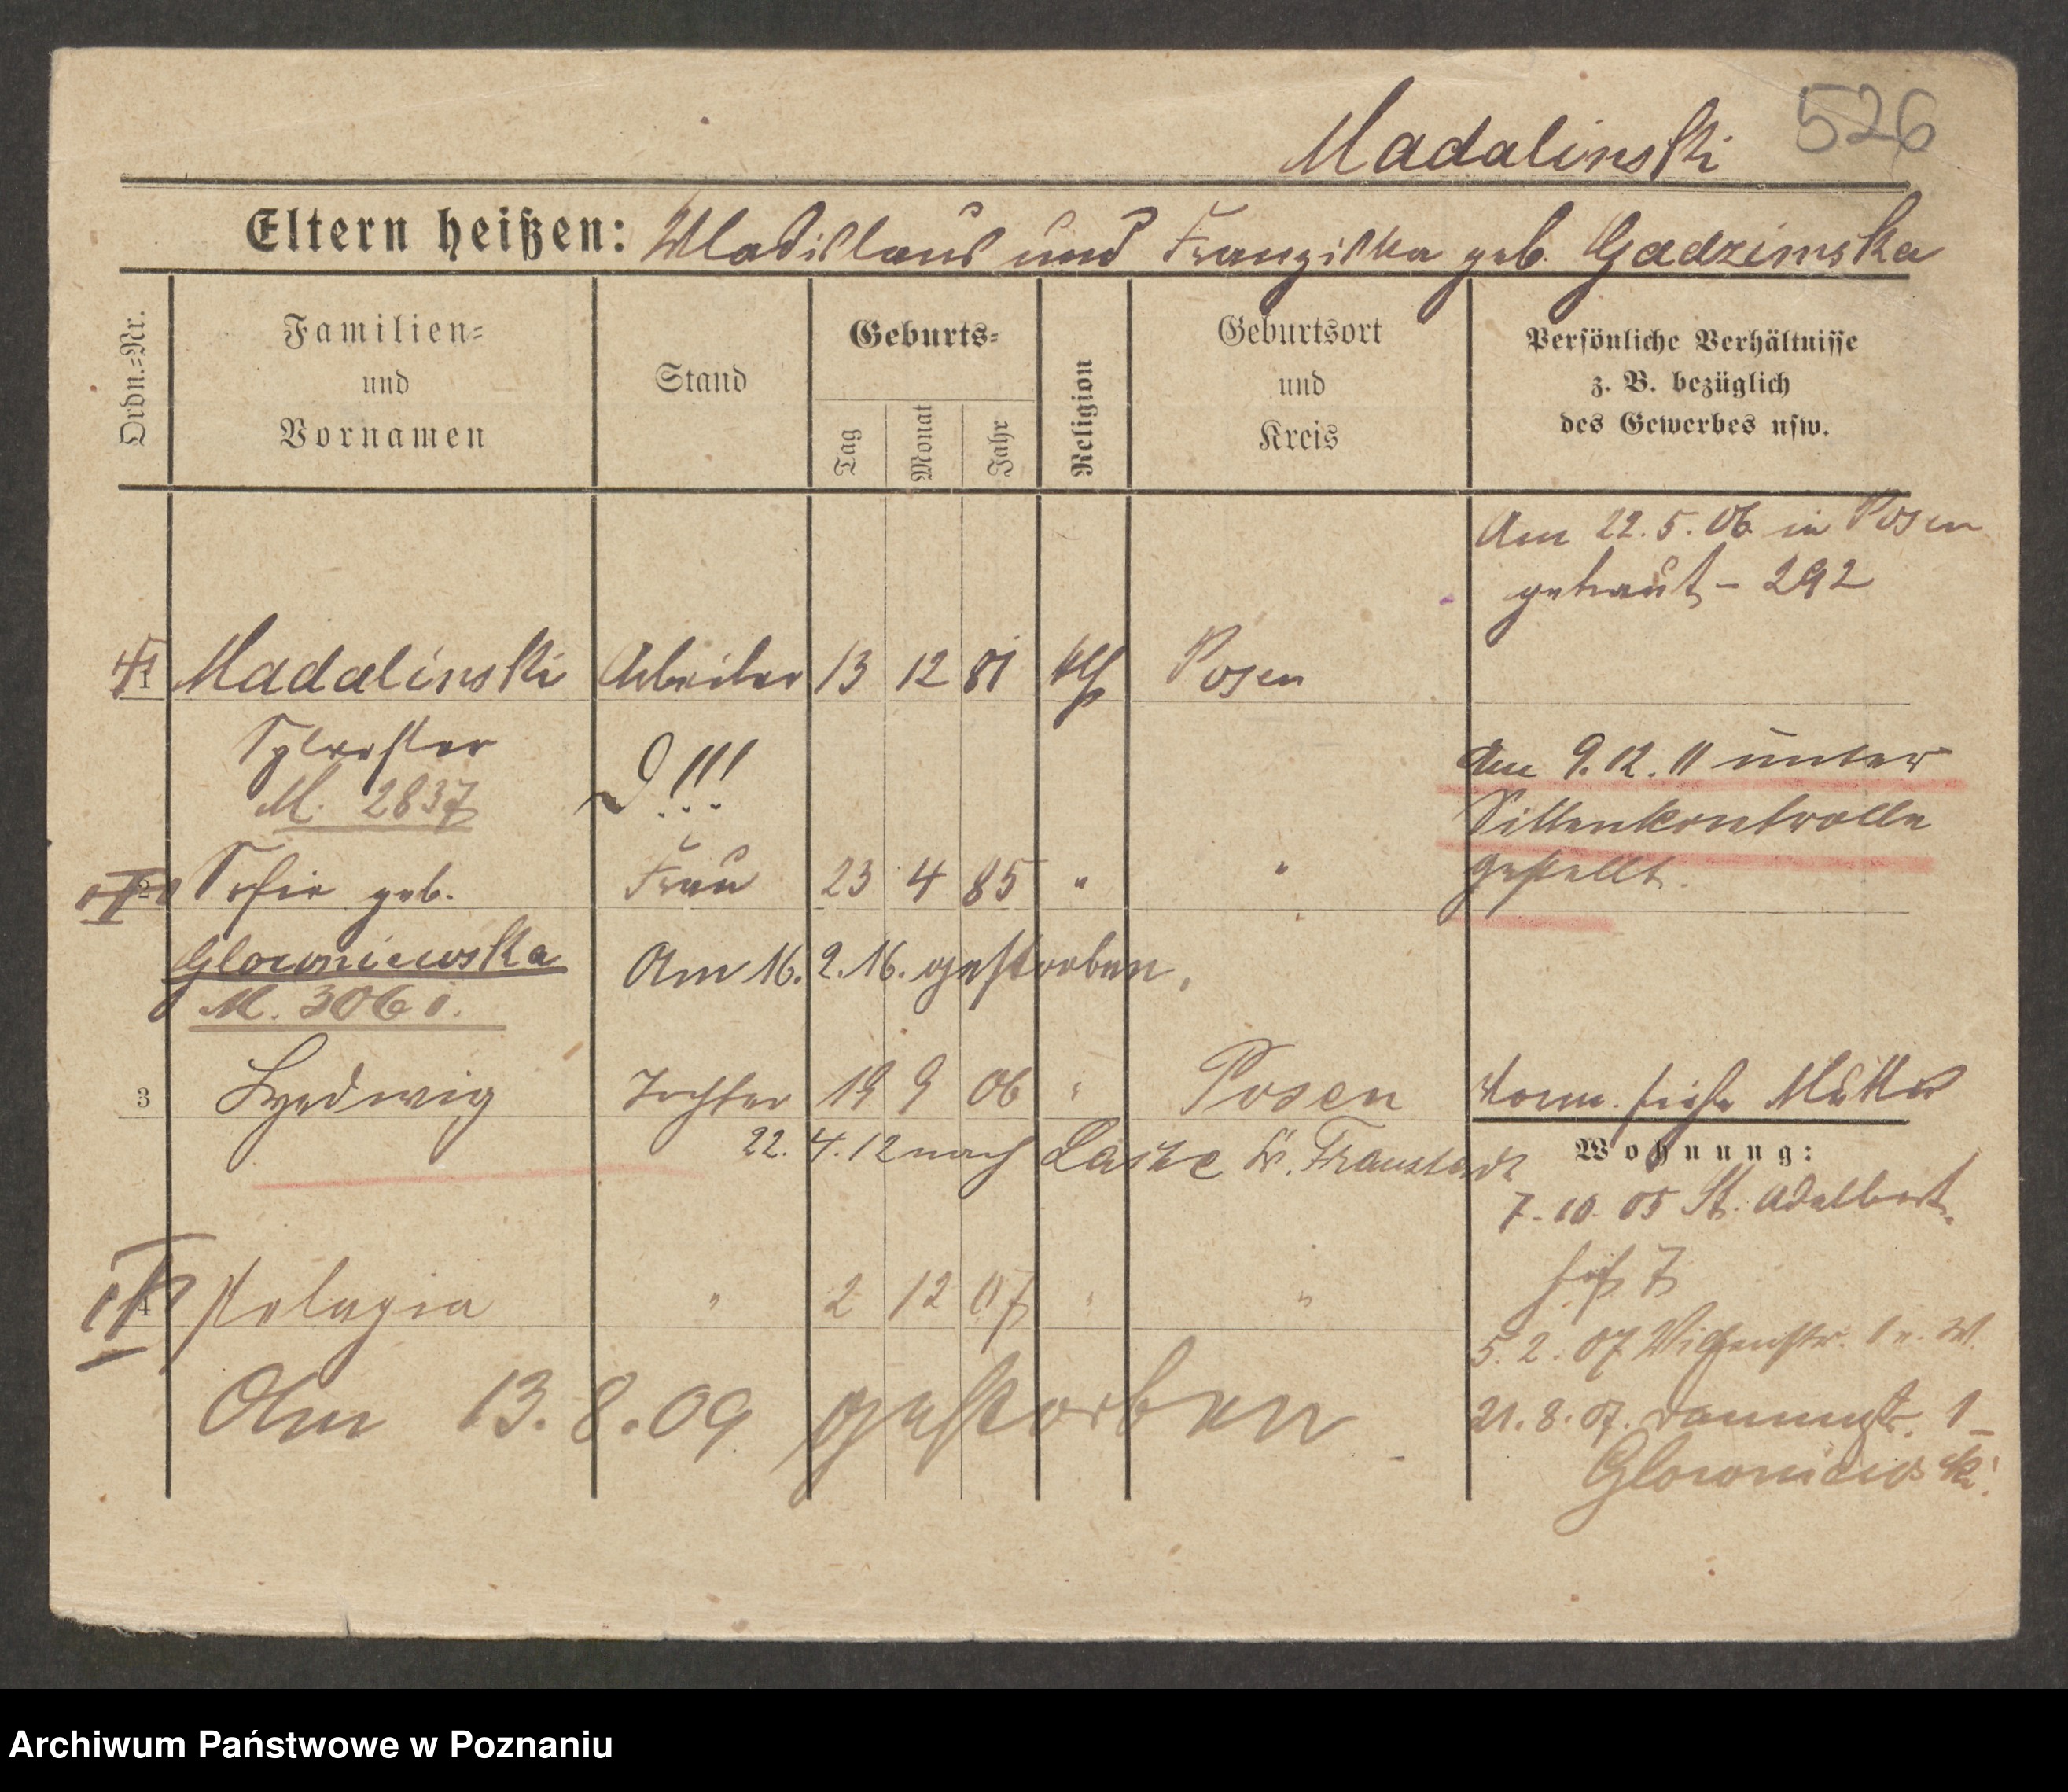 Madalinski 526
Eltern heißen: Wladislaus und Franziska geb. Gadzinska
Ordn.=Nr.
Familien=
und
Vornamen
Stand
Geburts=
Tag
Monat
Jahr
Religion
Geburtsort
und
Kreis
Persönliche Verhältnisse
z. B. bezüglich
des Gewerbes usw.
Am 22.5.06 in Posen
getraut - 292
1 Madalinski Arbeiter 13 12 81 kth Posen
Sylvester
M. 2837
!!!
Am 9.12.11 unter
Sittenkontrolle
gestellt.
2 Sofie geb. Frau 23 4 85 " "
Glowniewska
Am 16.2.16. gestorben.
M. 3061.
3 Hedwig Tochter 19 9 06 " Posen
Vorm. siehe Mutter
22.4.12 nach Laske Kr. Fraustadt
Wohnung:
7.10.05 St. Adalbert
7
4 Pelagia " 2 12 07 " "
5.2.07
Am 13.8.09 gestorben
21.8.07. 1
Glowniewski